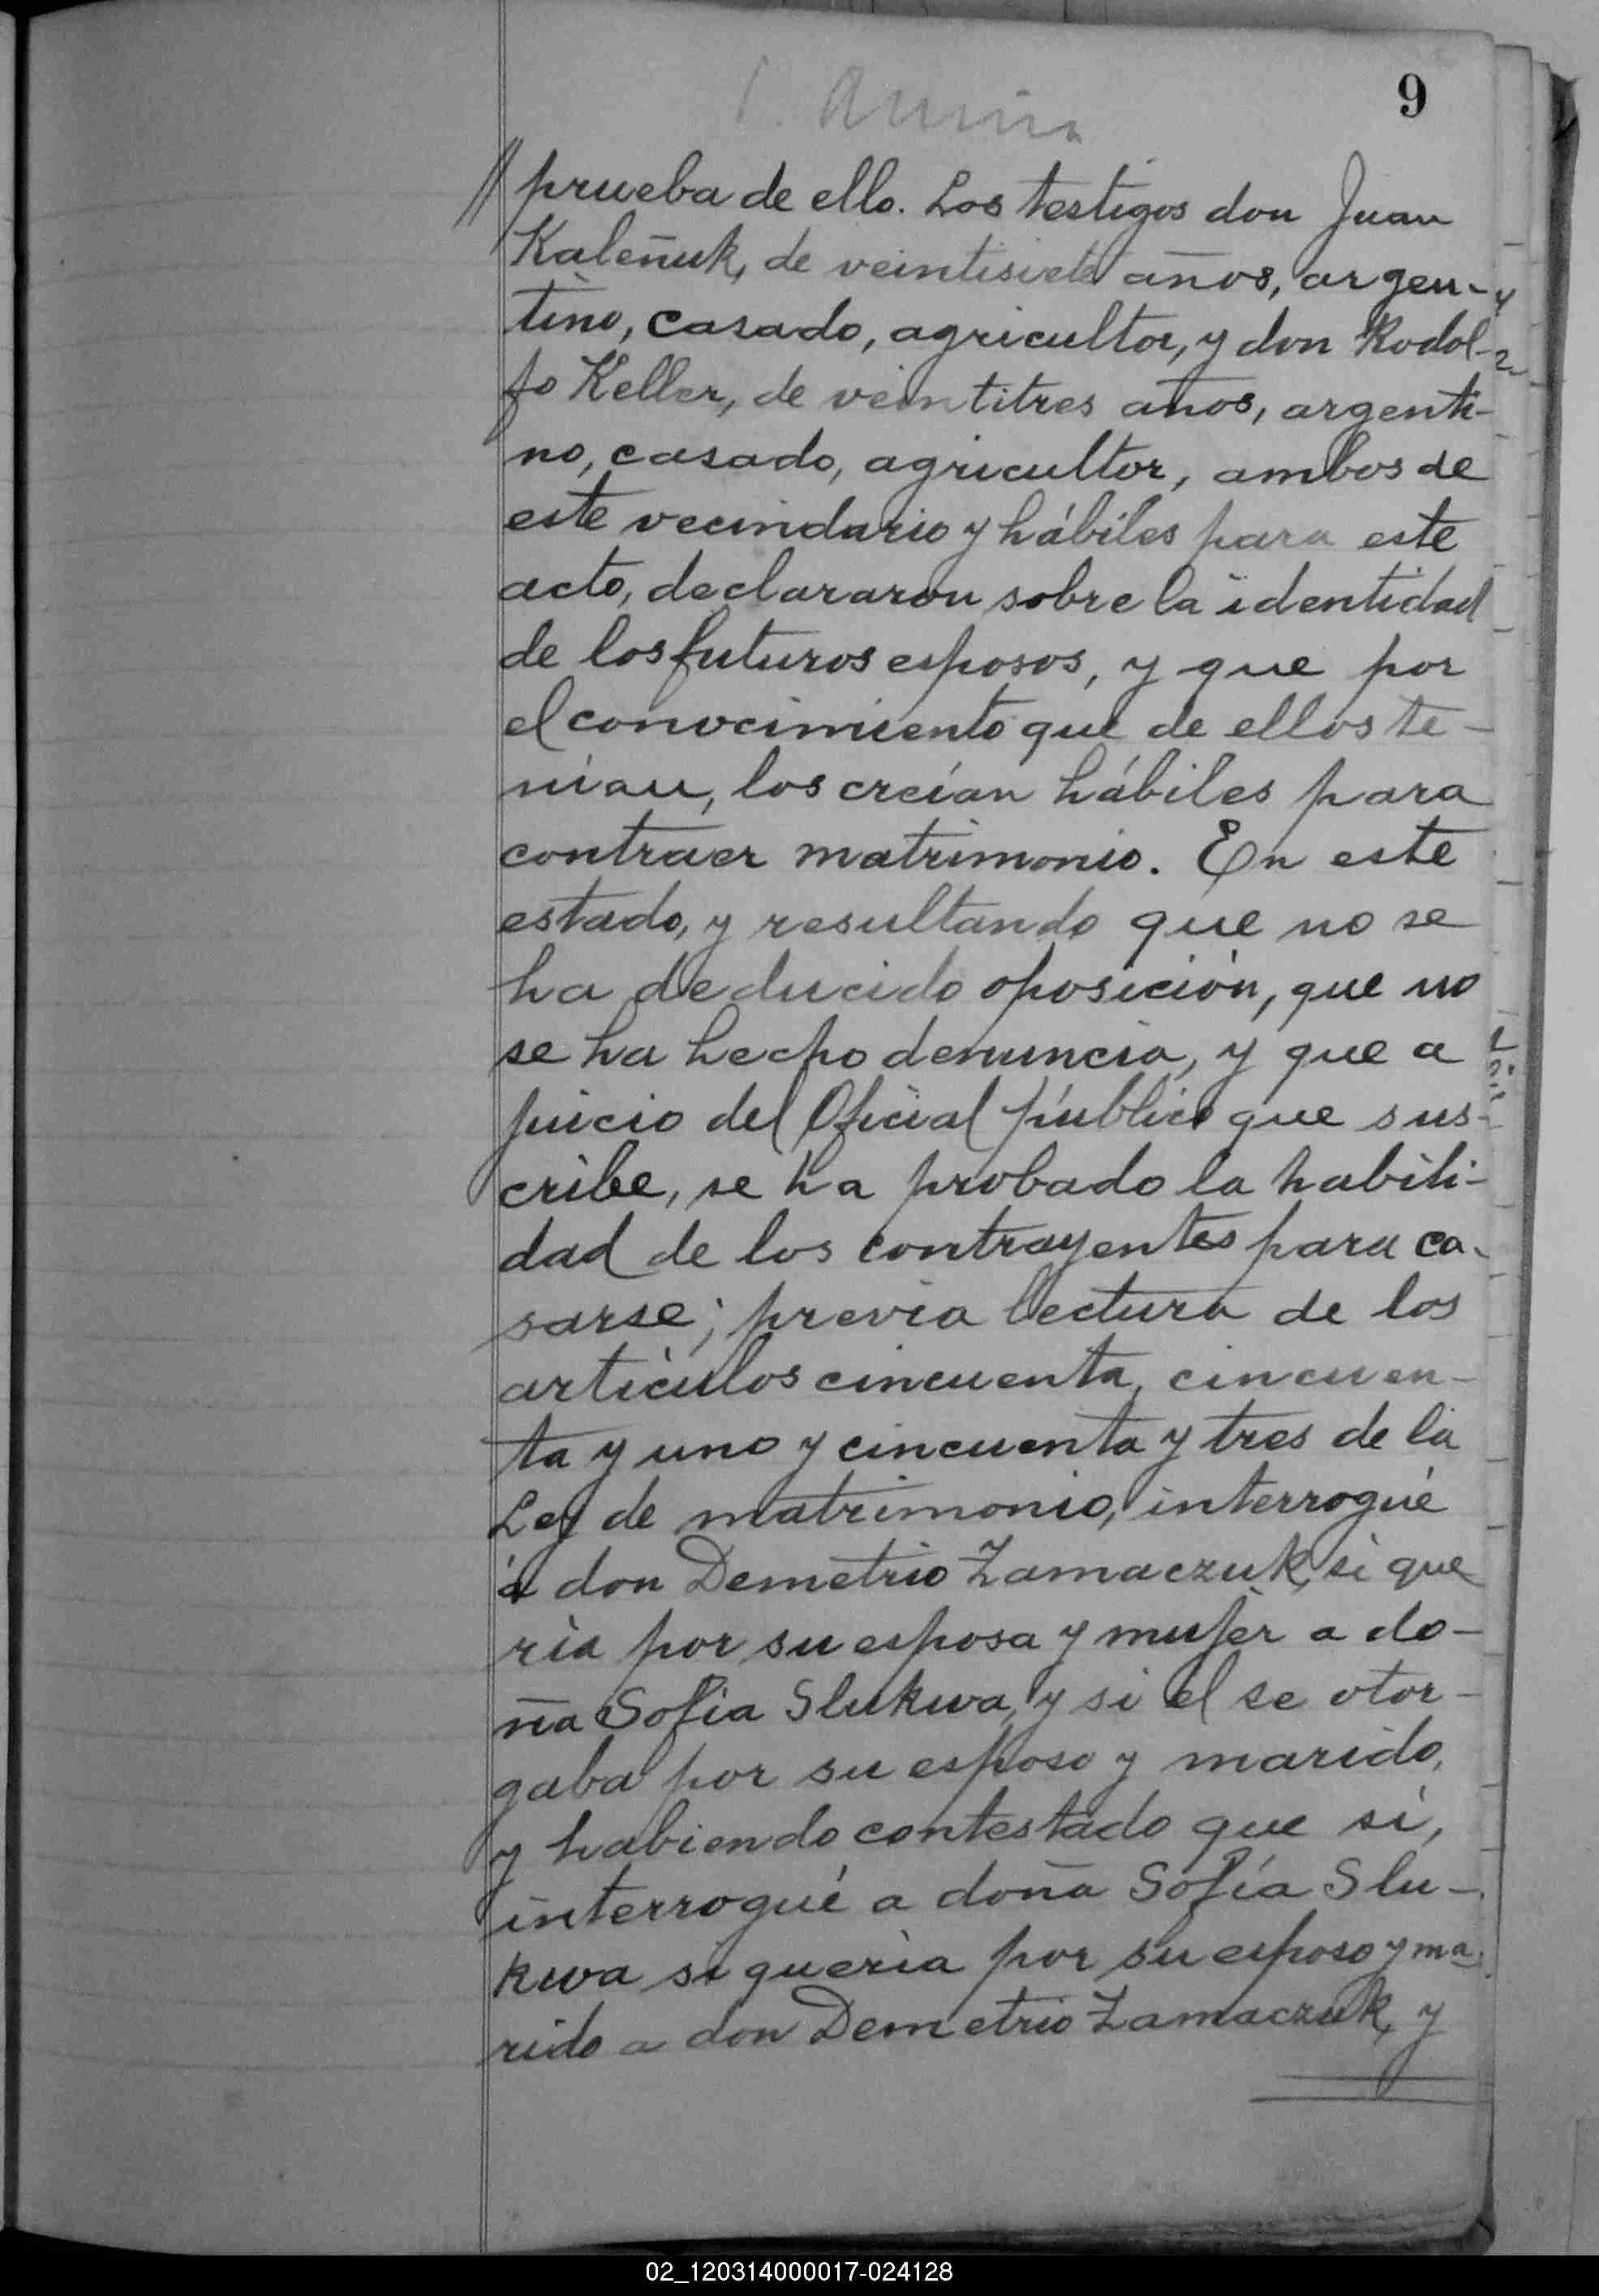 9
// prueba de ello. Los testigos don Juan
Kaleñuk, de veintisiete años, argen-
tino, casado, agricultor, y don Rodol-
fo Keller, de veintitres años, argenti-
no, casado, agricultor, ambos de
este vecindario y hábiles para este
acto, declararon sobre la identidad
de los futuros esposos, y que por
el conocimiento que de ellos te-
nían, los creían hábiles para
contraer matrimonio. En este
estado, y resultando que no se
ha deducido oposición, que no
se ha hecho denuncia, y que a
juicio del Oficial público que sus-
cribe, se ha probado la habili-
dad de los contrayentes para ca-
sarse; previa lectura de los
artículos cincuenta, cincuen-
ta y uno y cincuenta y tres de la
Ley de matrimonio, interrogué
á don Demetrio Zamaczuk, si que
ría por su esposa y mujer a do-
ña Sofía Slukwa, y si él se otor-
gaba por su esposo y marido,
y habiendo contestado que sí,
interrogué a doña Sofía Slu-
kwa si quería por su esposo y ma-
rido a don Demetrio Zamaczuk, y
02_120314000017-024128